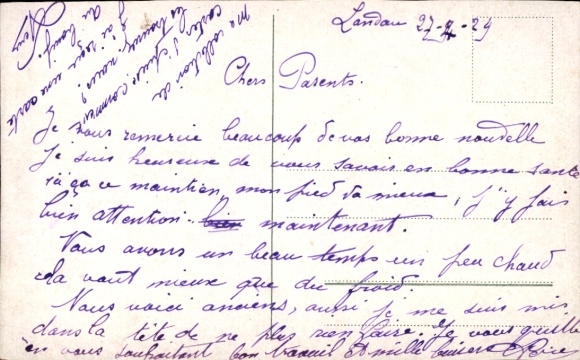 Landau 27-4-29
Chers Parents.
Je vous remercie beaucoup de vos bonne nouvelle
Je suis heureuse de vous savoir en bonne santé
si ça ce maintien, mon pied va mieux, j'y fais
bien attention maintenant.
Nous avons un beau temps un peu chaud
cela vaut mieux que du froid.
Nous voici anciens, aussi je me suis mis
dans la tête de ne plus rien faire. Je vous quitte
en vous souhaitant bon travail et mille baisers
Ma collection de
cartes
comment
les trouvez vous?
J'ai reçu une carte